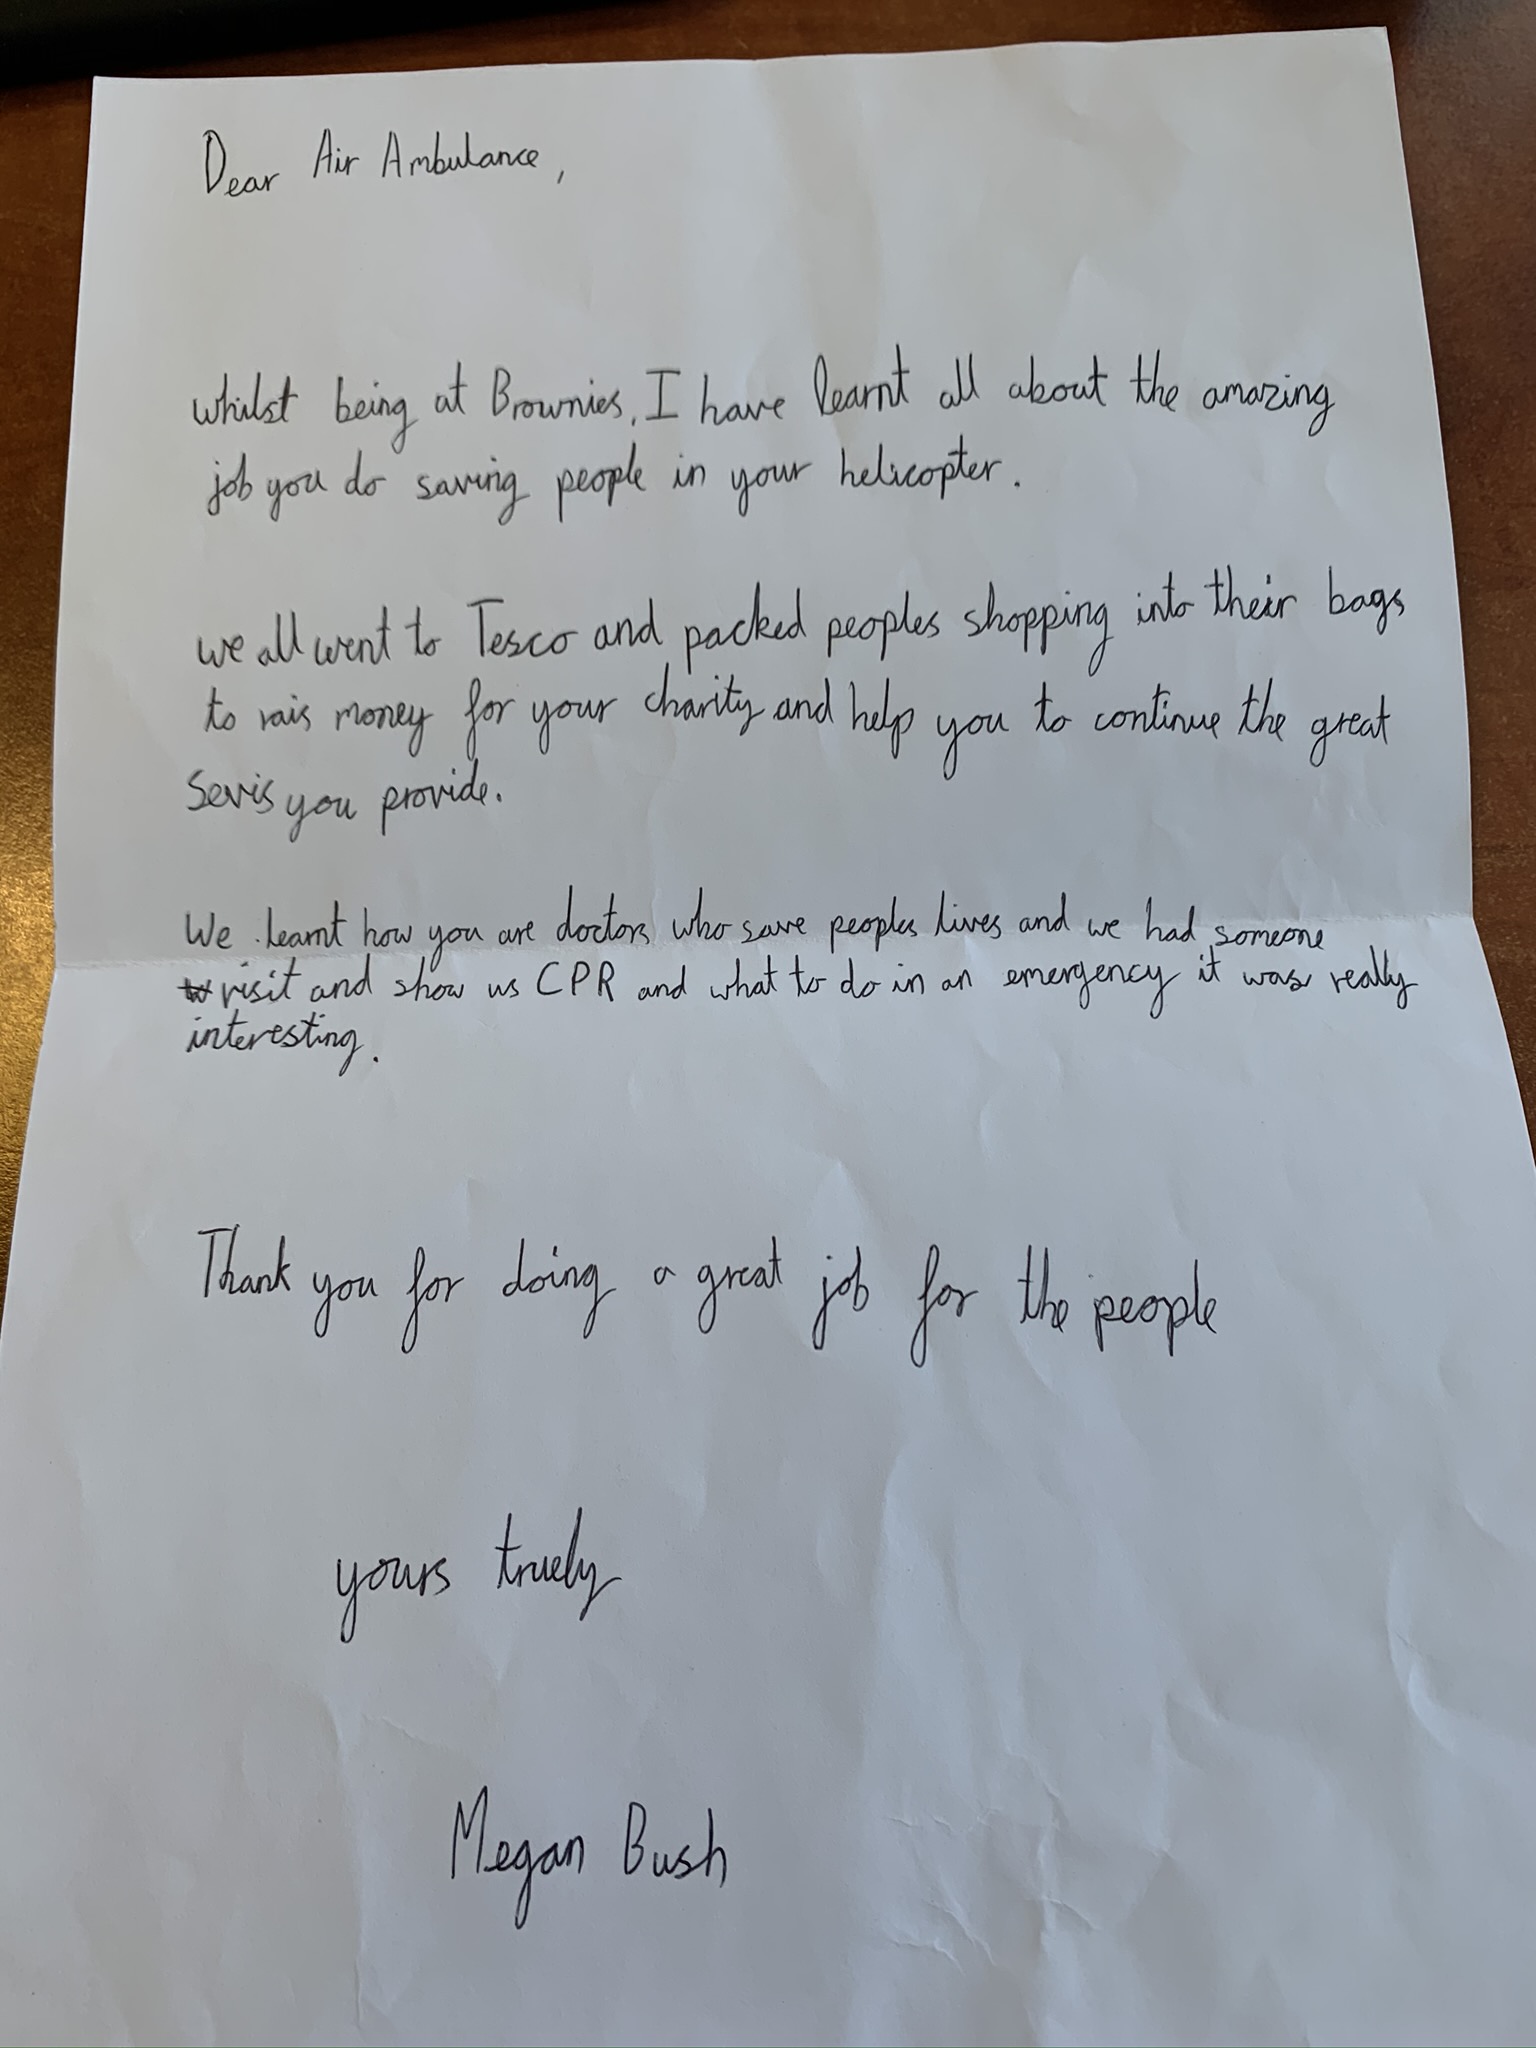 Dear Air Ambulance,
whilst being at Brownies, I have learnt all about the amazing
job you do saving people in your helicopter.
we all went to Tesco and packed peoples shopping into their bags
to rais money for your charity and help you to continue the great
Sevis you provide.
We learnt how you are doctors who save peoples lives and we had someone
visit and show us CPR and what to do in an emergency it was really
interesting.
Thank you for doing a great job for the people
yours truely
Megan Bush